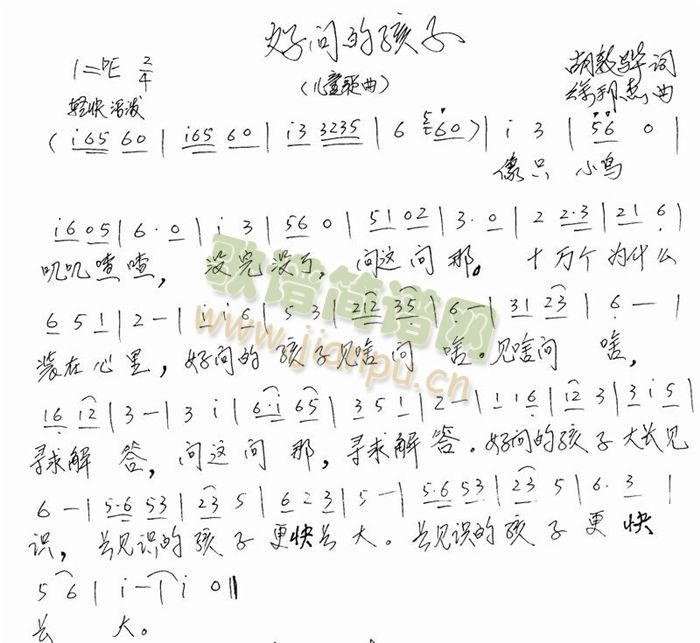 好问的孩子
1=♭E 2/4
（儿童歌曲）
胡敦骅 词
轻快 活泼
徐邦杰 曲
( i65 60 | i65 60 | i3 3235 | 6 5 60 ) | i 3 | 56 0 |
像只 小鸟
i605 | 6·0 | i 3 | 56 0 | 5102 | 3·0 | 2 2·3 | 21 6 |
叽叽喳喳， 没完没了， 问这问那。 十万个为什么
6 5 1 | 2 - | 1 1 6 | 5 3 | 212 35 | 6 - | 31 23 | 6 - |
装在心里， 好问的孩子见啥问啥。见啥问啥，
16 12 | 3 - | 3 i | 6·i 65 | 3 5 1 | 2 - | 1 16 | 12 3 | 3 i 5 |
寻求解答， 问这问那， 寻求解答。好问的孩子大长见
6 - | 5·6 53 | 23 5 | 6 2 3 | 5 - | 5·6 53 | 23 5 | 6·3 |
识， 长见识的孩子更快长大。长见识的孩子更快
5 6 | i - | i 0 ‖
长大。
歌谱简谱网
www.jianpu.cn